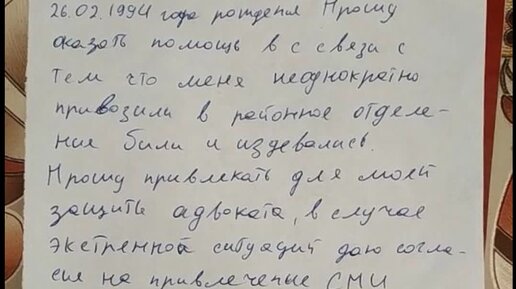 26.02.1994 года рождепия Прошу
оказать помощь в с связи с
тем что меня неоднократно
привозили в районное отделе-
ние били и издевались.
Прошу привлекать для моей
защиты адвоката, в случае
экстренной ситуаций даю согла-
сие на привлечепие СМИ